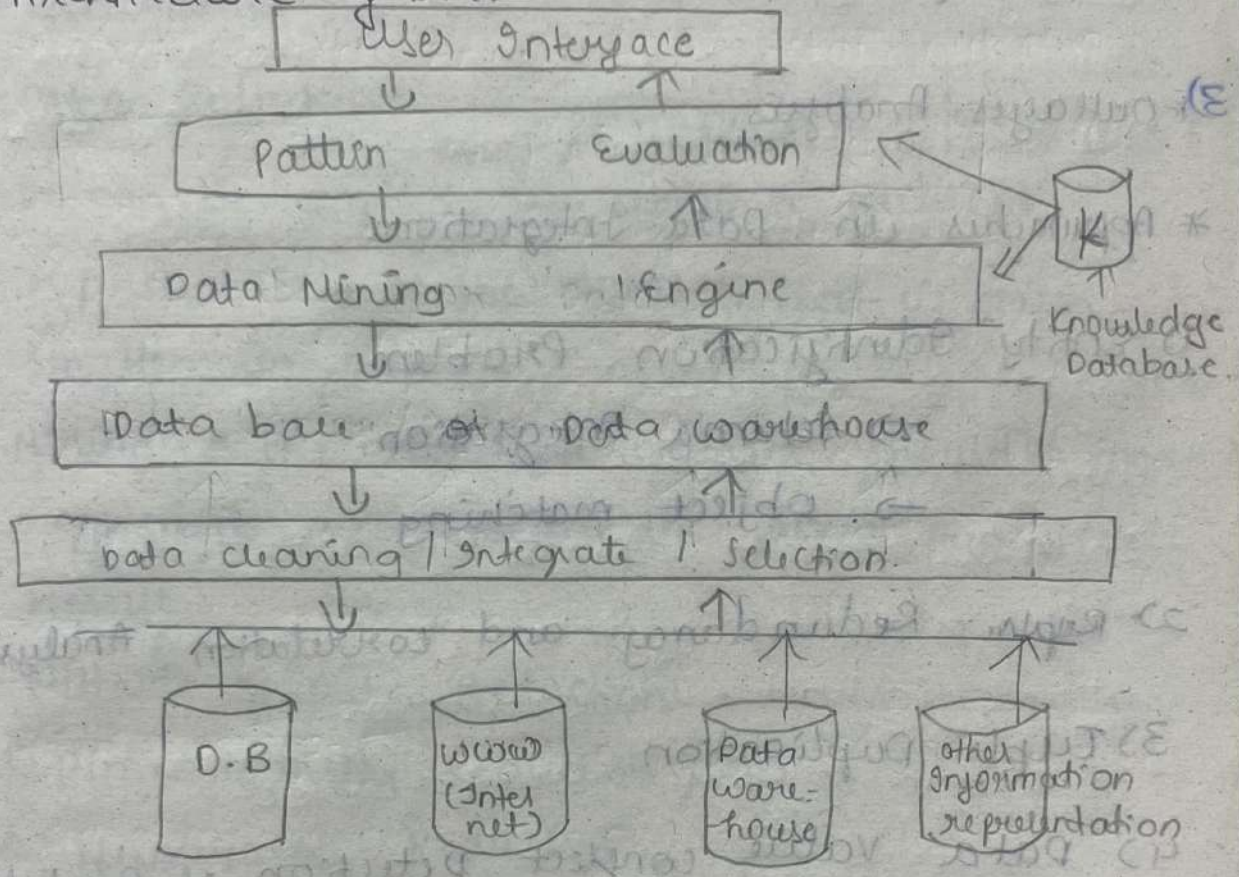 User Interface
Pattern Evaluation
K
Data Mining Engine
Knowledge
Database.
Data base or Data warehouse
Data cleaning / Integrate / Selection.
D.B
WWW
(Inter
net)
Data
Ware-
house
other
Information
representation